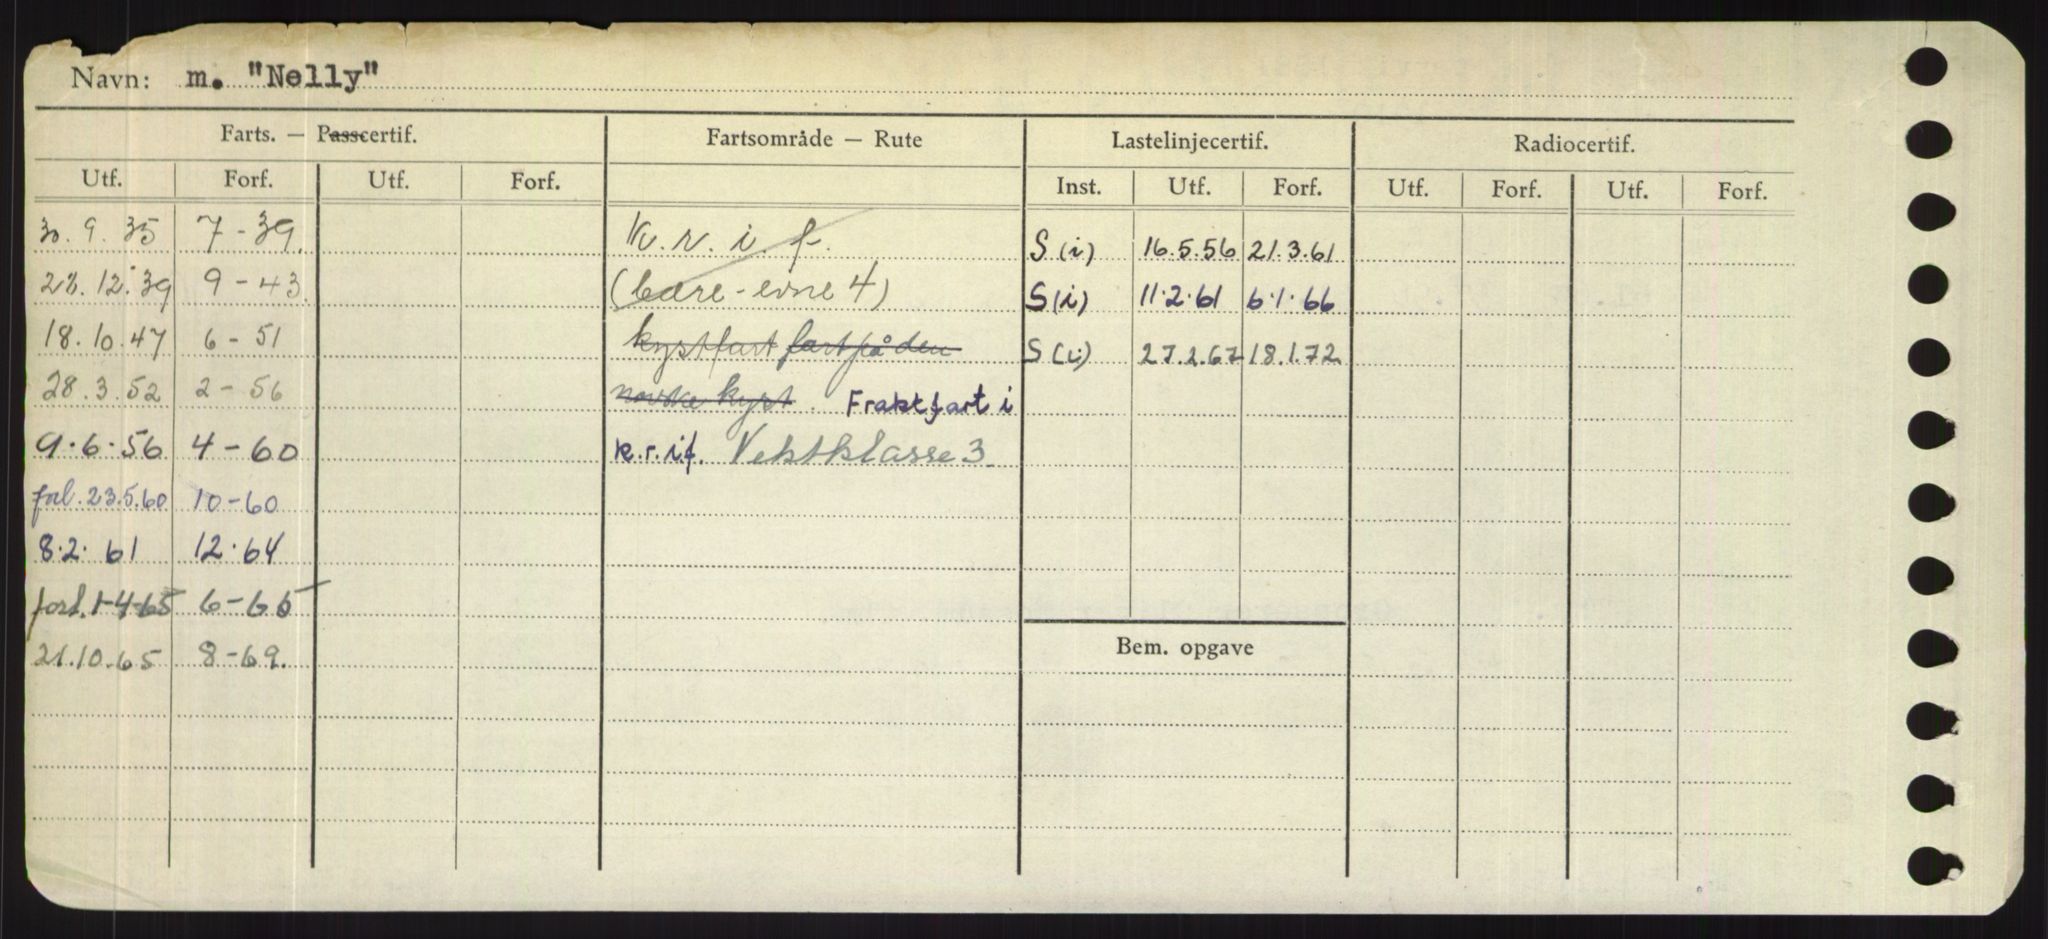 Navn: m. "Nelly"
Farts. — Passcertif. Fartsområde — Rute Lastelinjecertif. Radiocertif.
Utf. Forf. Utf. Forf. Inst. Utf. Forf. Utf. Forf. Utf. Forf.
30. 9. 35 7 - 39. K. r. i. f. S (i) 16.5.56 21.3.61
22. 12. 39 9 - 43. (bære-evne 4) S (i) 11.2.61 6.1.66
18. 10. 47 6 - 51 kystfart fart på den S (i) 27.2.67 18.1.72
28. 3. 52 2 - 56 norske kyst. Fraktfart i
9.6.56 4 - 60 k.r.i f. Vektklasse 3
forl. 23.5.60 10 - 60
8.2. 61 12.64
forl. 1-4-65 6 - 65
21.10.65 8 - 69.
Bem. opgave